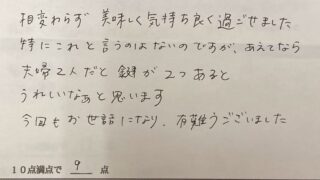 相変わらず 美味しく気持ち良く過ごせました
特にこれと言うのはないのですが、あえてなら
夫婦2人だと 鍵が2つあると
うれしいなぁと思います
今回もお世話になり、有難うございました
10点満点で 9 点